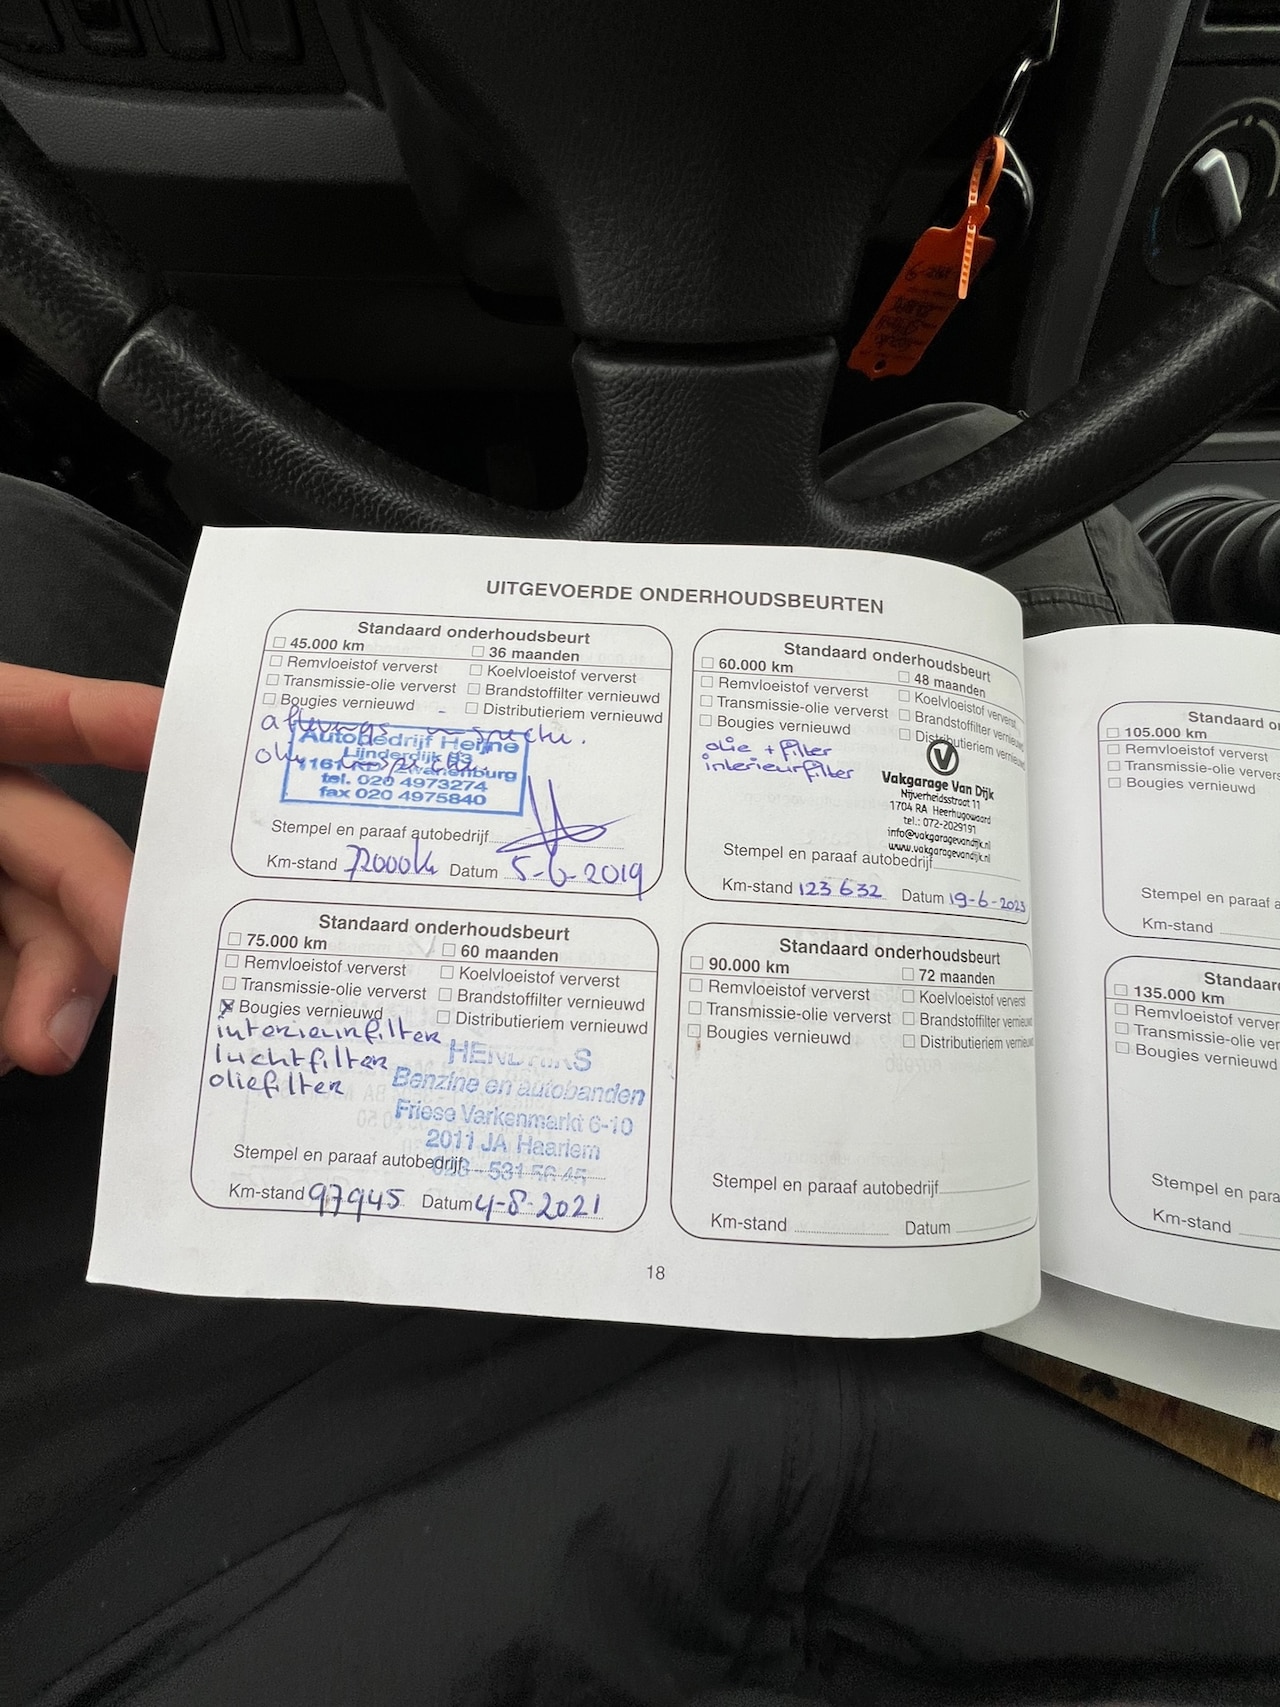 UITGEVOERDE ONDERHOUDSBEURTEN
Standaard onderhoudsbeurt
☐ 45.000 km ☐ 36 maanden
☐ Remvloeistof ververst ☐ Koelvloeistof ververst
☐ Transmissie-olie ververst ☐ Brandstoffilter vernieuwd
☐ Bougies vernieuwd ☐ Distributieriem vernieuwd
Autobedrijf Heijne
Lijnderdijk
1161 Zwanenburg
tel. 020 4973274
fax 020 4975840
Stempel en paraaf autobedrijf
Km-stand 72000k Datum 5-6-2019
Standaard onderhoudsbeurt
☐ 60.000 km ☐ 48 maanden
☐ Remvloeistof ververst ☐ Koelvloeistof ververst
☐ Transmissie-olie ververst ☐ Brandstoffilter vernieuwd
☐ Bougies vernieuwd ☐ Distributieriem vernieuwd
olie + filter
interieurfilter
Vakgarage Van Dijk
Nijverheidsstraat 11
1704 RA Heerhugowaard
tel.: 072-2029191
info@vakgaragevandijk.nl
www.vakgaragevandijk.nl
Stempel en paraaf autobedrijf
Km-stand 123 632 Datum 19-6-2023
Standaard onderhoudsbeurt
☐ 75.000 km ☐ 60 maanden
☐ Remvloeistof ververst ☐ Koelvloeistof ververst
☐ Transmissie-olie ververst ☐ Brandstoffilter vernieuwd
☒ Bougies vernieuwd ☐ Distributieriem vernieuwd
interieurfilter
luchtfilter
oliefilter
HENDRIKS
Benzine en autobanden
Friese Varkenmarkt 6-10
2011 JA Haarlem
Stempel en paraaf autobedrijf
Km-stand 97945 Datum 4-8-2021
Standaard onderhoudsbeurt
☐ 90.000 km ☐ 72 maanden
☐ Remvloeistof ververst ☐ Koelvloeistof ververst
☐ Transmissie-olie ververst ☐ Brandstoffilter vernieuwd
☐ Bougies vernieuwd ☐ Distributieriem vernieuwd
Stempel en paraaf autobedrijf
Km-stand Datum
18
Standaard
☐ 105.000 km
☐ Remvloeistof ververst
☐ Transmissie-olie ververs
☐ Bougies vernieuwd
Stempel en paraaf
Km-stand
Standaard
☐ 135.000 km
☐ Remvloeistof verver
☐ Transmissie-olie ver
☐ Bougies vernieuwd
Stempel en para
Km-stand